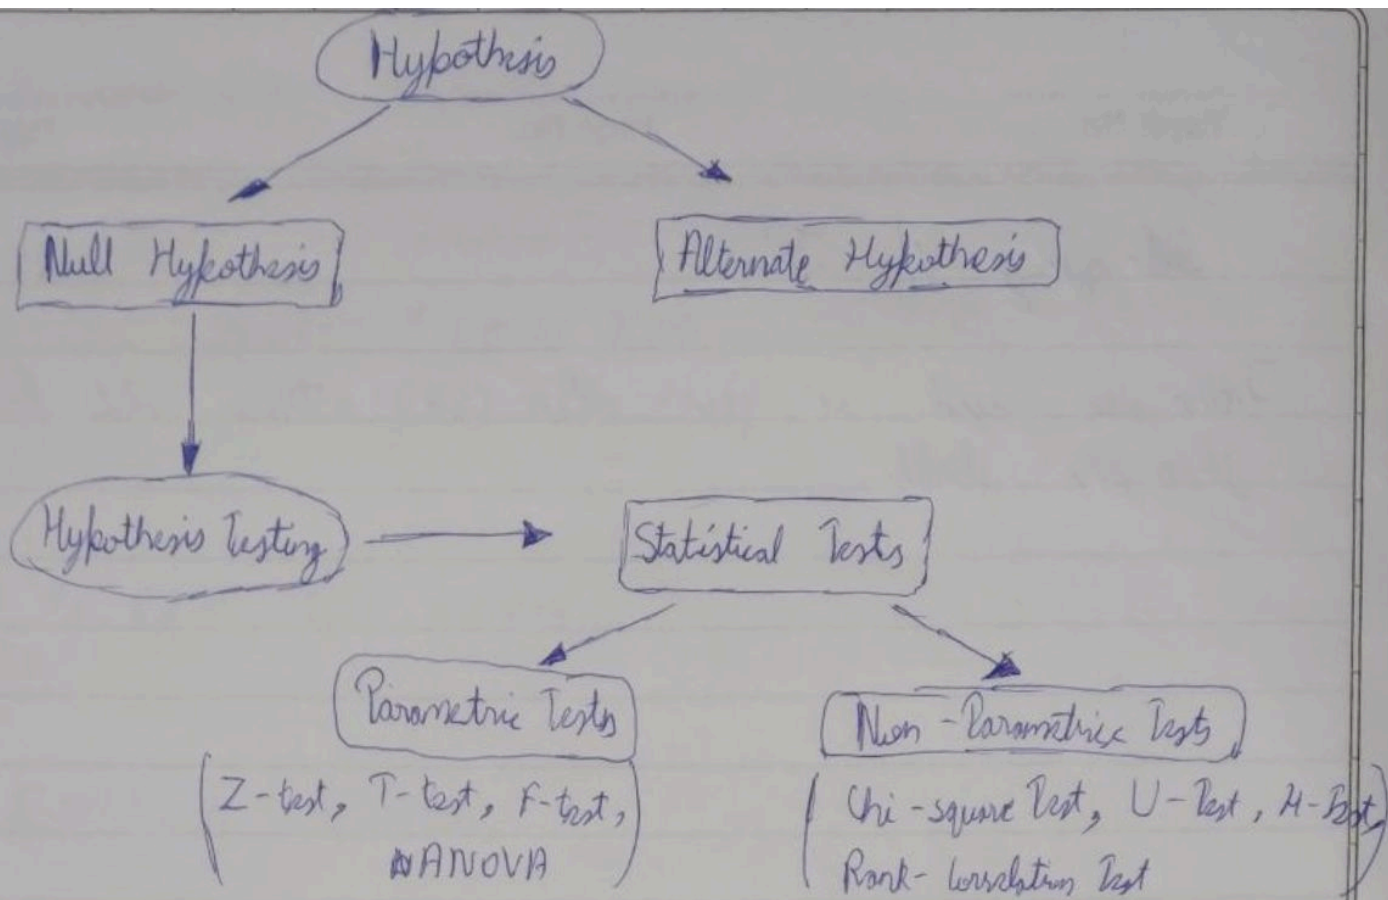 Hypothesis
Null Hypothesis
Alternate Hypothesis
Hypothesis Testing
Statistical Tests
Parametric Tests
Non-Parametric Tests
(Z-test, T-test, F-test,
ANOVA)
(Chi-square Test, U-Test, H-Test,
Rank-Correlation Test)